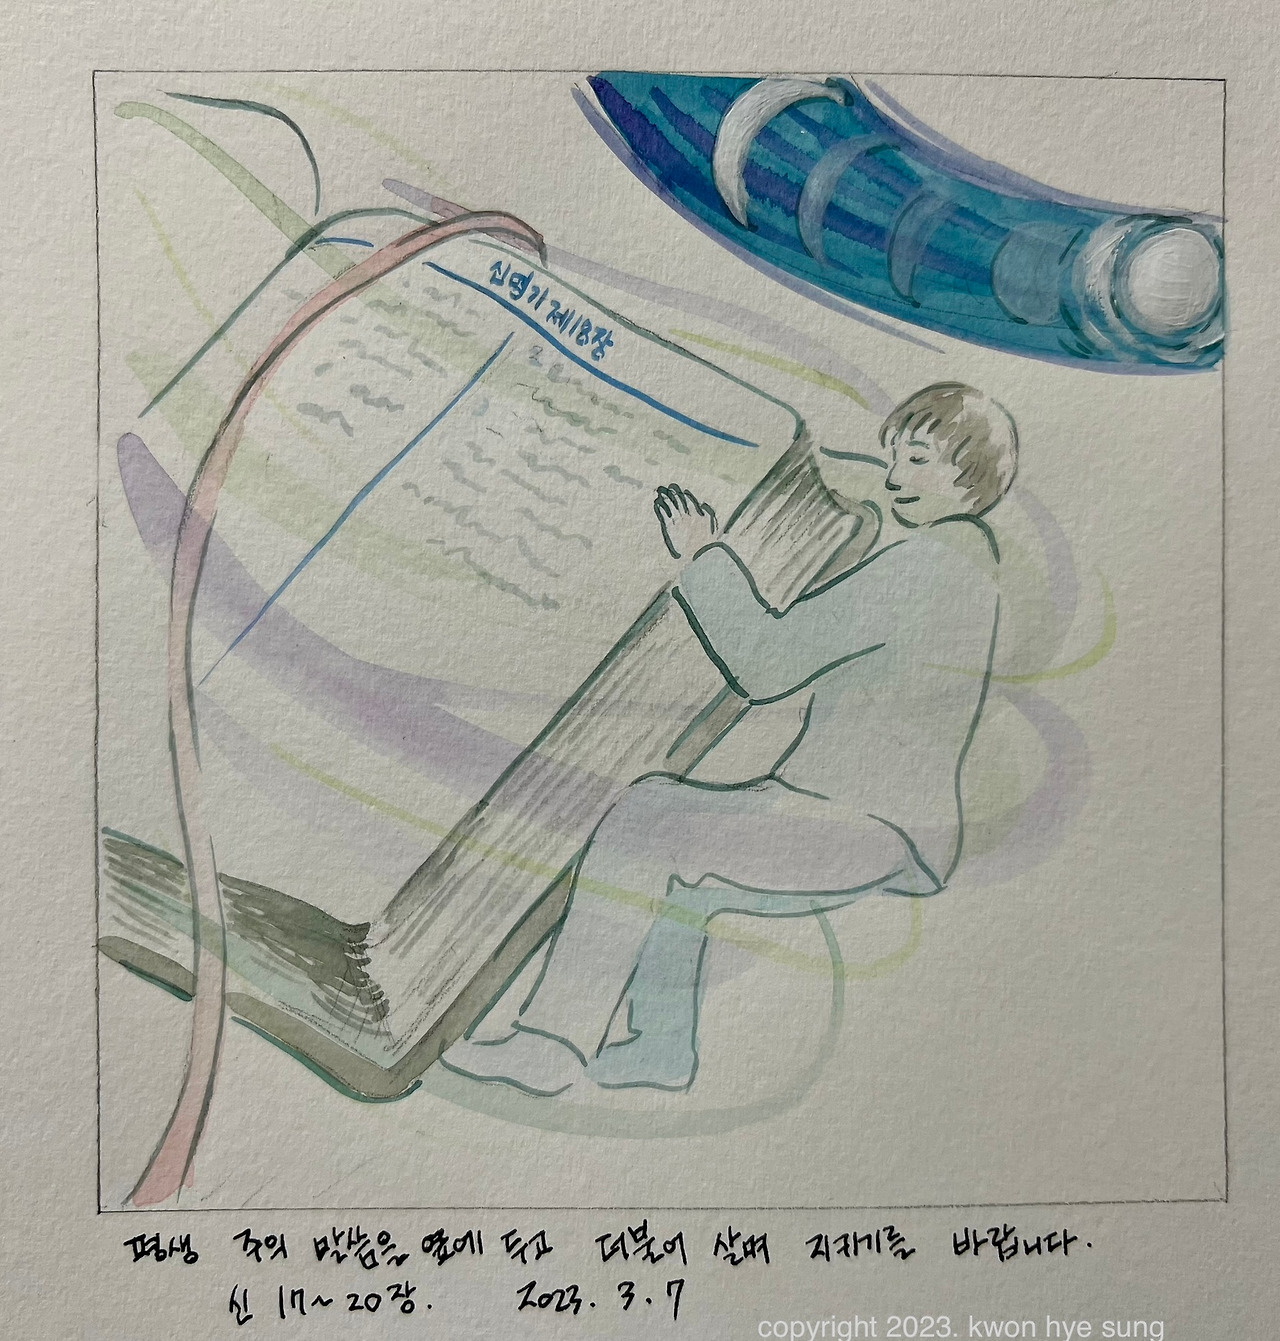 신명기 제18장
평생 주의 말씀을 옆에 두고 더불어 살며 지키기를 바랍니다.
신 17~20장. 2023. 3. 7
copyright 2023. kwon hye sung